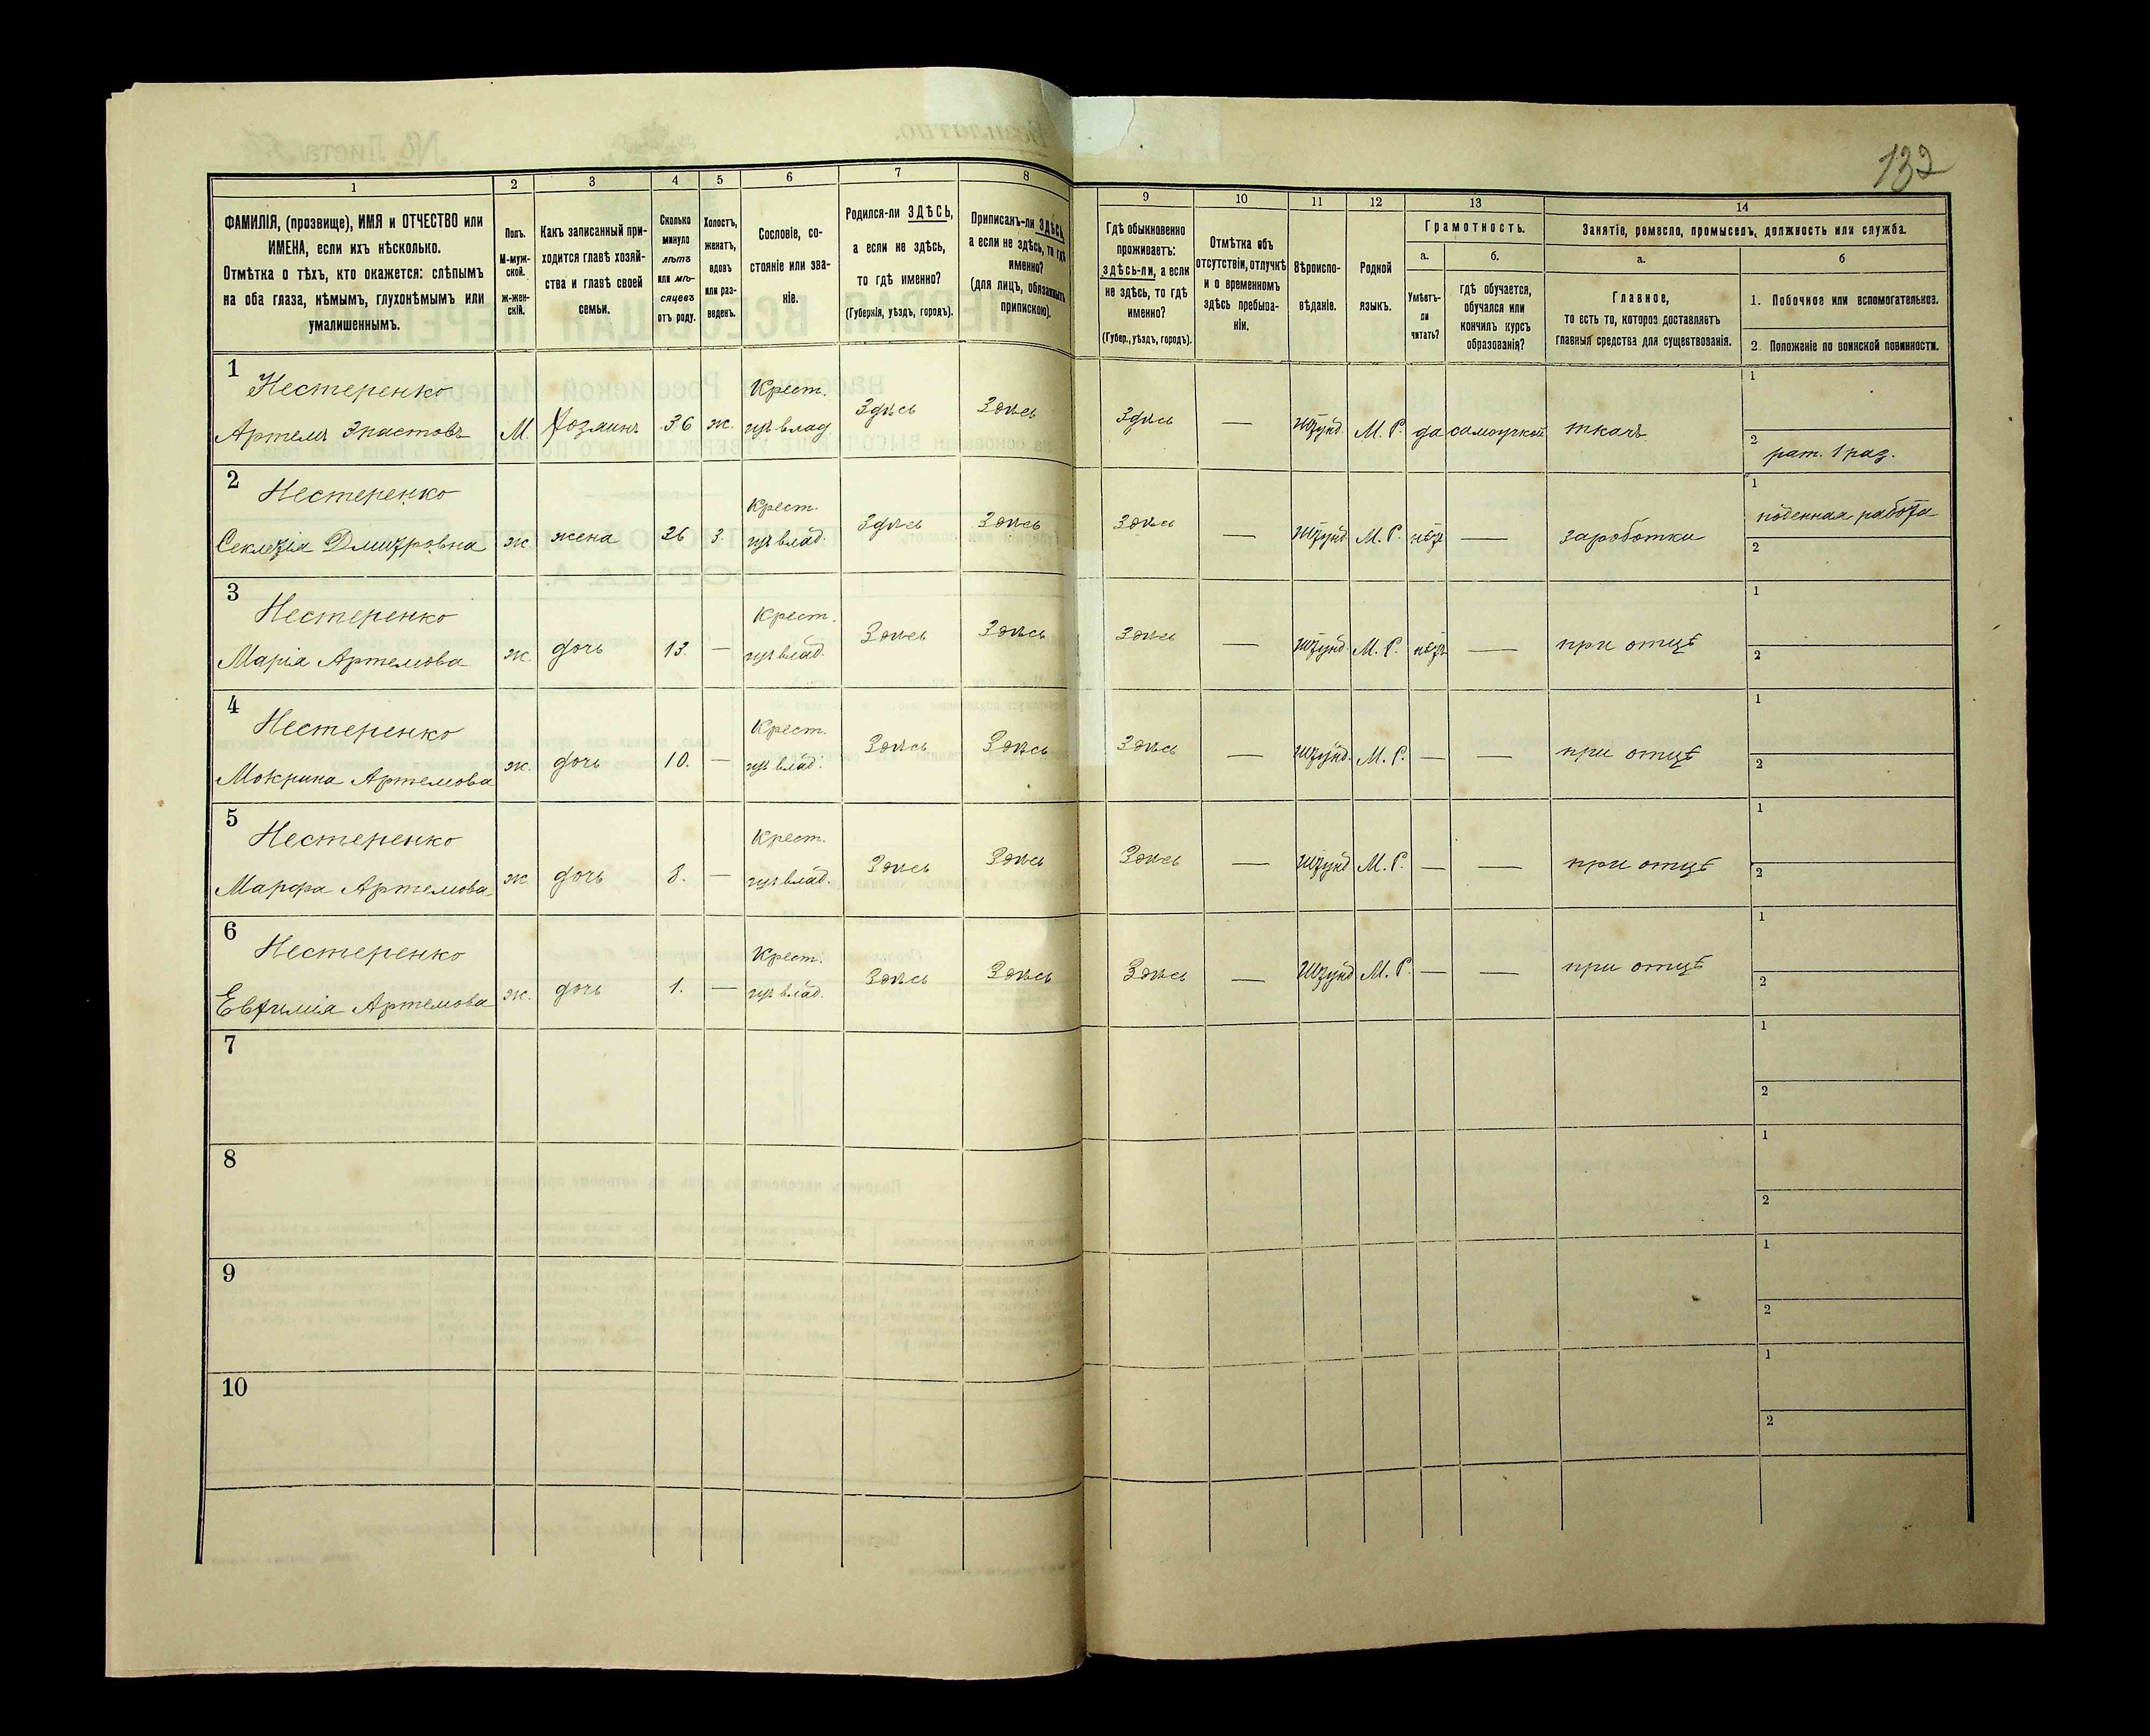 132
1
2
3
4
5
6
7
8
9
10
11
12
13
14
ФАМИЛІЯ, (прозвище), ИМЯ и ОТЧЕСТВО или
ИМЕНА, если ихъ нѣсколько.
Отмѣтка о тѣхъ, кто окажется: слѣпымъ
на оба глаза, нѣмымъ, глухонѣмымъ или
умалишеннымъ.
Полъ.
М-муж-
ской.
ж-жен-
скій.
Какъ записанный при-
ходится главѣ хозяй-
ства и главѣ своей
семьи.
Сколько
минуло
лѣтъ
или мѣ-
сяцевъ
отъ роду.
Холостъ,
женатъ,
вдовъ
или раз-
веденъ.
Сословіе, со-
стояніе или зва-
ніе.
Родился-ли ЗДѢСЬ,
а если не здѣсь,
то гдѣ именно?
(Губернія, уѣздъ, городъ).
Приписанъ-ли ЗДѢСЬ,
а если не здѣсь, то гдѣ
именно?
(для лицъ, обязанныхъ
припискою).
Гдѣ обыкновенно
проживаетъ:
здѣсь-ли, а если
не здѣсь, то гдѣ
именно?
(Губер., уѣздъ, городъ).
Отмѣтка объ
отсутствіи, отлучкѣ
и о временномъ
здѣсь пребыва-
ніи.
Вѣроиспо-
вѣданіе.
Родной
языкъ.
Грамотность.
а.
Умѣетъ-
ли
читать?
б.
гдѣ обучается,
обучался или
кончилъ курсъ
образованія?
Занятіе, ремесло, промыселъ, должность или служба.
а.
Главное,
то есть то, которое доставляетъ
главныя средства для существованія.
б
1. Побочное или вспомогательное.
2. Положеніе по воинской повинности.
1
Нестеренко Крест.
Артемъ М. Хозяинъ 36 ж. влад Здѣсь Здѣсь Здѣсь — Штунд. М. Р. да самоучкой ткачъ
1
2 рат. 1 раз.
2
Нестеренко Крест.
Секлетія Дмитровна ж жена 36 з. влад. Здѣсь Здѣсь Здѣсь — Штунд. М. Р. нѣтъ — заработки
1 поденная работа
2
3
Нестеренко Крест.
Марія Артемова ж. дочь 13. — влад. Здѣсь Здѣсь Здѣсь — Штунд. М. Р. нѣтъ — при отцѣ
1
2
4
Нестеренко Крест.
Мокрина Артемова ж. дочь 10. — влад. Здѣсь Здѣсь Здѣсь — Штунд. М. Р. — — при отцѣ
1
2
5
Нестеренко Крест.
Марфа Артемова ж дочь 8. — влад. Здѣсь Здѣсь Здѣсь — Штунд М. Р. — — при отцѣ
1
2
6
Нестеренко Крест.
Евфимія Артемова ж. дочь 1. — влад. Здѣсь Здѣсь Здѣсь — Штунд М. Р. — — при отцѣ
1
2
7
1
2
8
1
2
9
1
2
10
1
2